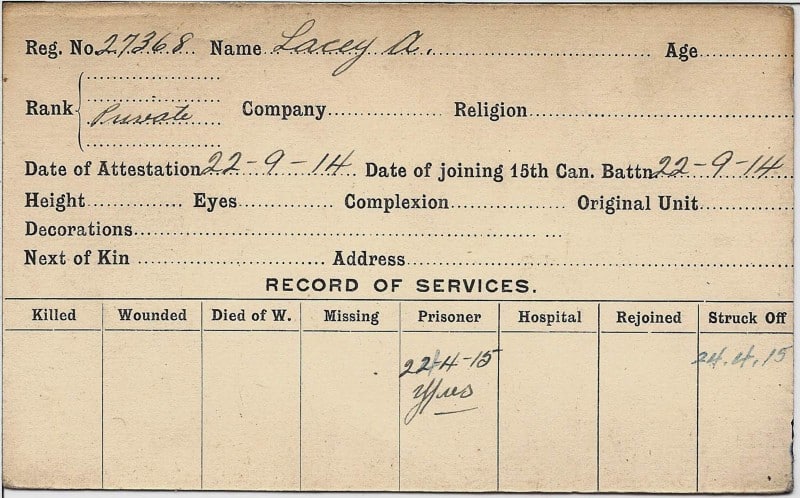 Reg. No. 27368 Name Lacey A. Age
Rank Private Company Religion
Date of Attestation 22-9-14 Date of joining 15th Can. Battn 22-9-14
Height Eyes Complexion Original Unit
Decorations
Next of Kin Address
RECORD OF SERVICES.
Killed Wounded Died of W. Missing Prisoner Hospital Rejoined Struck Off
4-15 24.4.15
Ypres